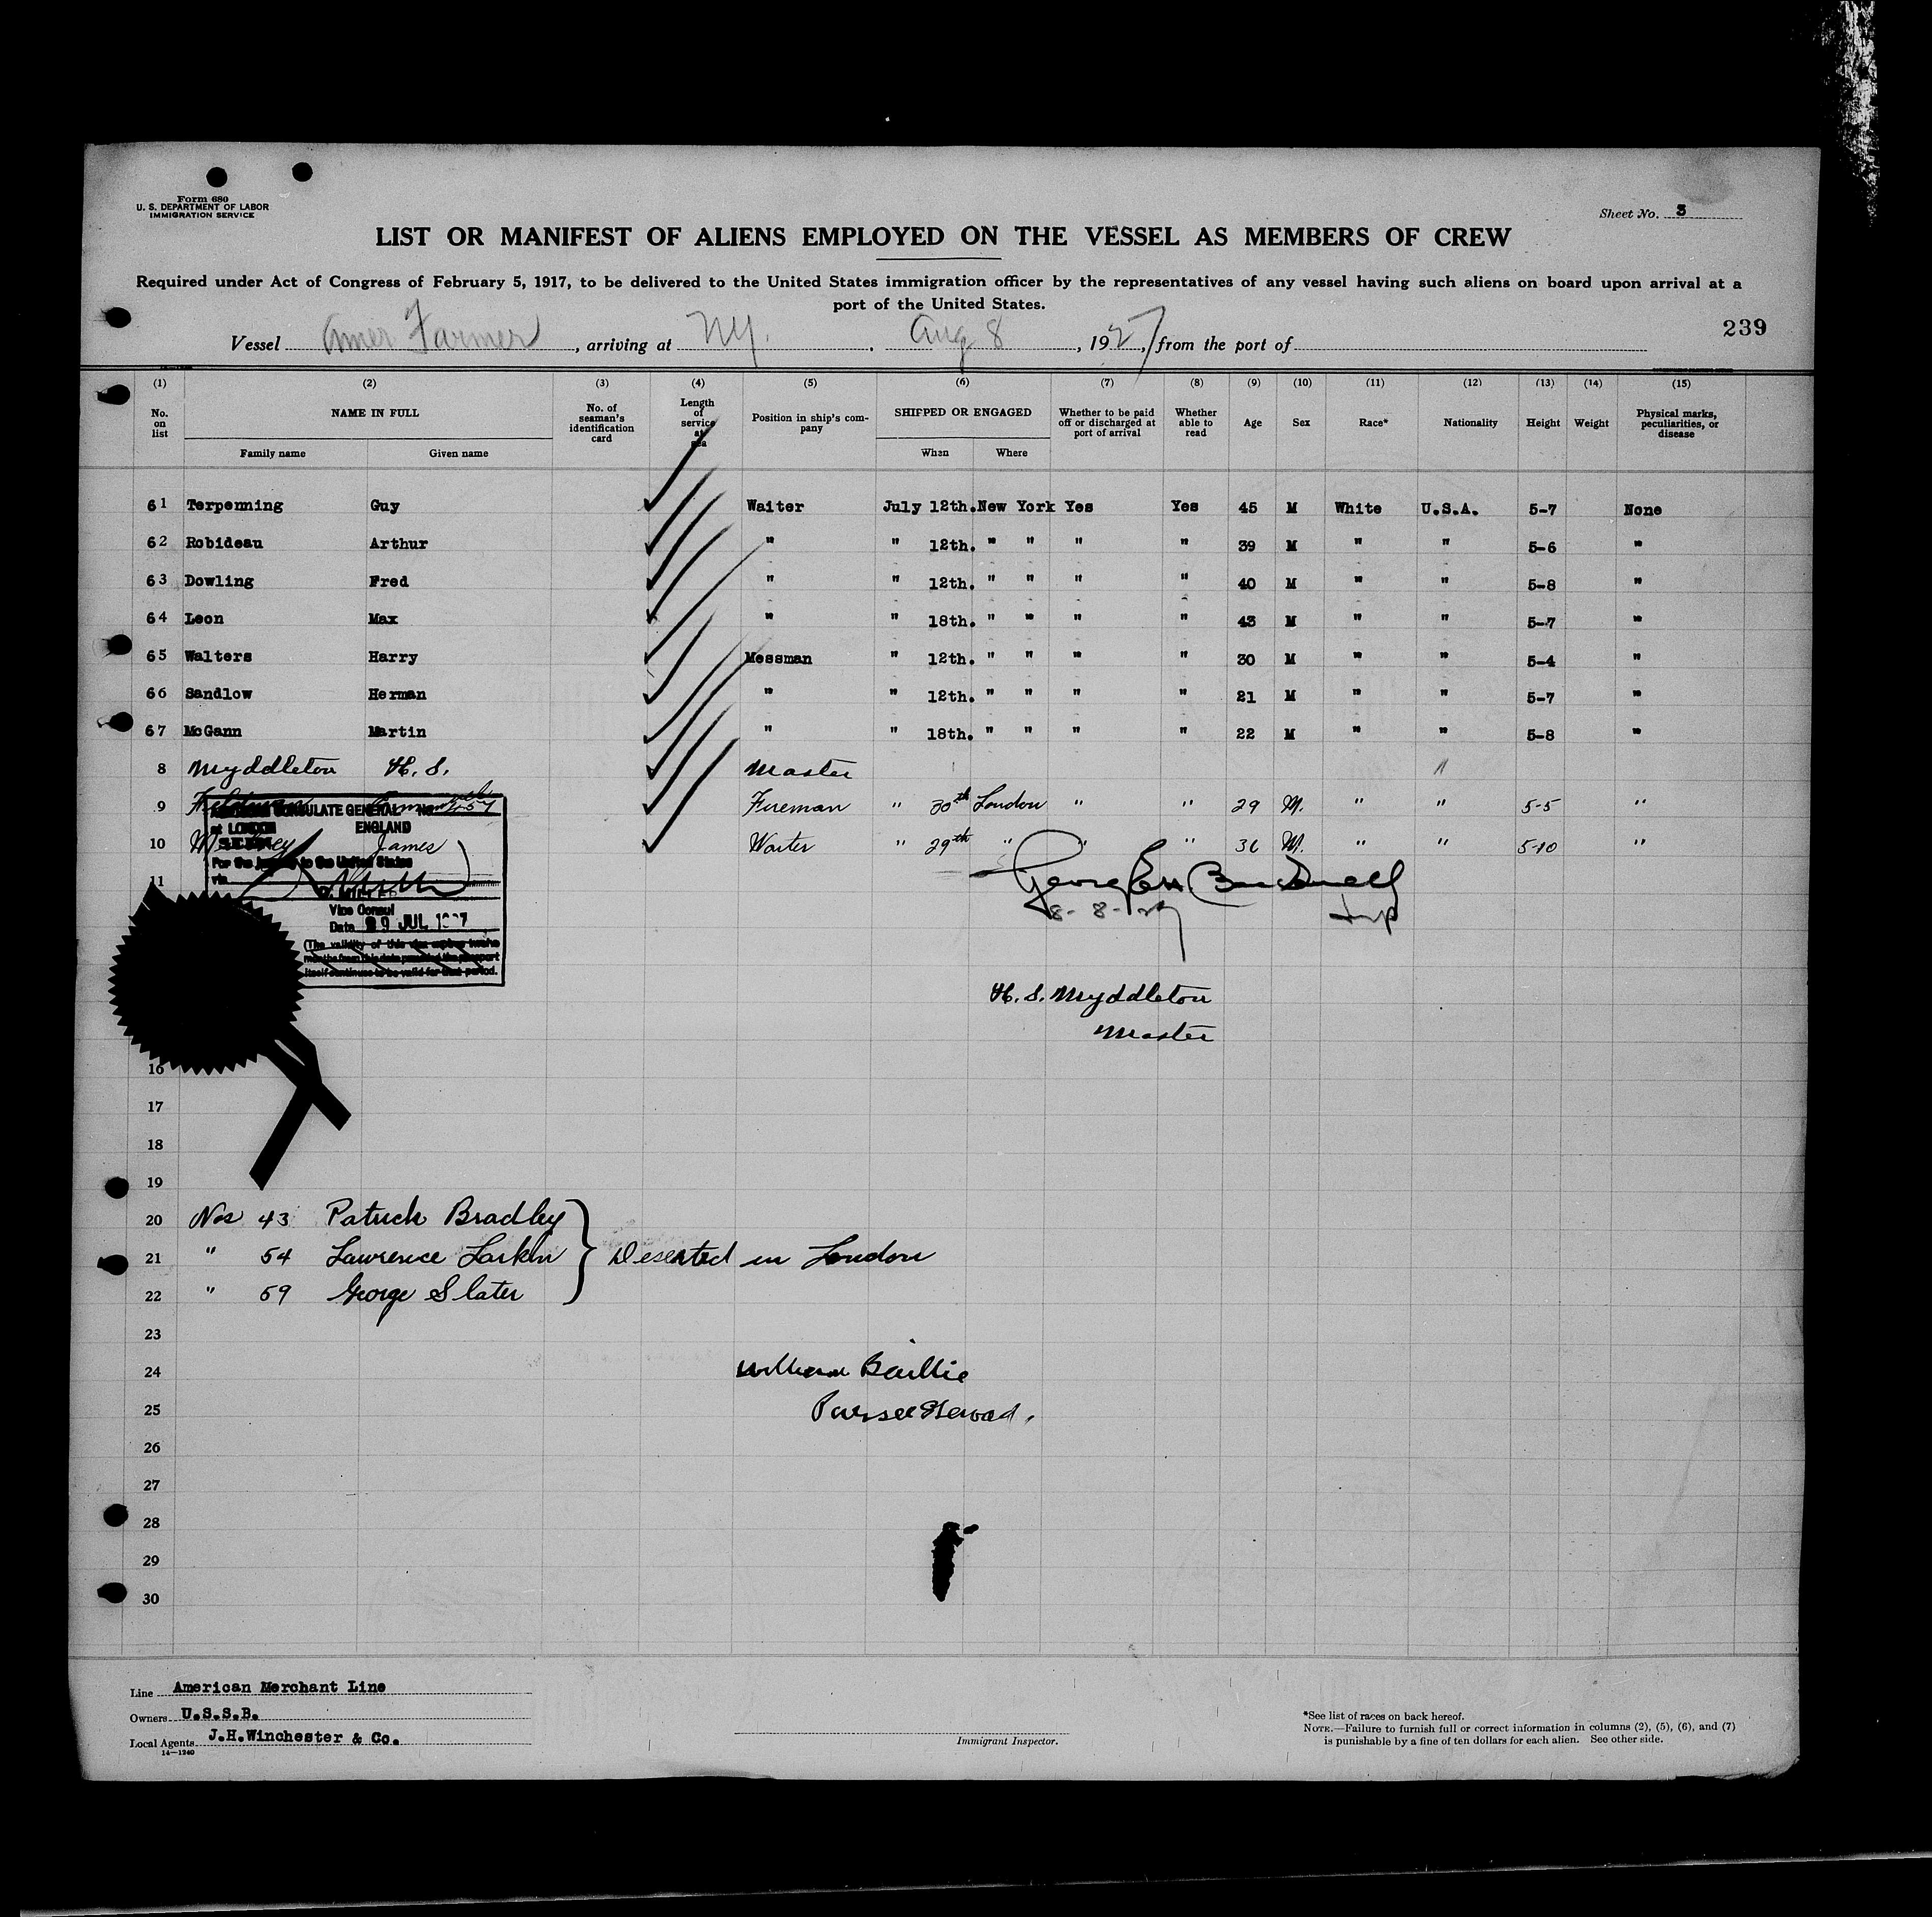 Form 680
U. S. DEPARTMENT OF LABOR
IMMIGRATION SERVICE
Sheet No. 3
LIST OR MANIFEST OF ALIENS EMPLOYED ON THE VESSEL AS MEMBERS OF CREW
Required under Act of Congress of February 5, 1917, to be delivered to the United States immigration officer by the representatives of any vessel having such aliens on board upon arrival at a
port of the United States.
239
Vessel Amer Farmer, arriving at N.Y., Aug 8, 1927, from the port of
(1) (2) (3) (4) (5) (6) (7) (8) (9) (10) (11) (12) (13) (14) (15)
No. on list NAME IN FULL No. of seaman's identification card Length of service at sea Position in ship's company SHIPPED OR ENGAGED Whether to be paid off or discharged at port of arrival Whether able to read Age Sex Race* Nationality Height Weight Physical marks, peculiarities, or disease
Family name Given name When Where
61 Terpenning Guy Waiter July 12th. New York Yes Yes 45 M White U.S.A. 5-7 None
62 Robideau Arthur " " 12th. " " " " 39 M " " 5-6 "
63 Dowling Fred " " 12th. " " " " 40 M " " 5-8 "
64 Leon Max " " 18th. " " " " 43 M " " 5-7 "
65 Walters Harry Messman " 12th. " " " " 30 M " " 5-4 "
66 Sandlow Herman " " 12th. " " " " 21 M " " 5-7 "
67 McGann Martin " " 18th. " " " " 22 M " " 5-8 "
8 Myddleton H. S. Master "
9 Fireman " 30th London " " 29 M. " " 5-5 "
10 James Waiter " 29th " " " 36 M. " " 5-10 "
11
CONSULATE GENERAL No.
at LONDON ENGLAND
SEEN
For the journey to the United States
via
Vice Consul
Date 29 JUL 1927
(The validity of this visa expires twelve
months from this date provided the passport
itself continues to be valid for that period.
George
8-8-27
Insp
H. S. Myddleton
Master
16
17
18
19
20 Nos 43 Patrick Bradley
21 " 54 Lawrence Larkin } Deserted in London
22 " 59 George Slater
23
24 William Baillie
25 Purser Steward.
26
27
28
29
30
Line American Merchant Line
Owners U.S.S.B.
Local Agents J.H.Winchester & Co.
14—1240
Immigrant Inspector.
*See list of races on back hereof.
NOTE.—Failure to furnish full or correct information in columns (2), (5), (6), and (7)
is punishable by a fine of ten dollars for each alien. See other side.